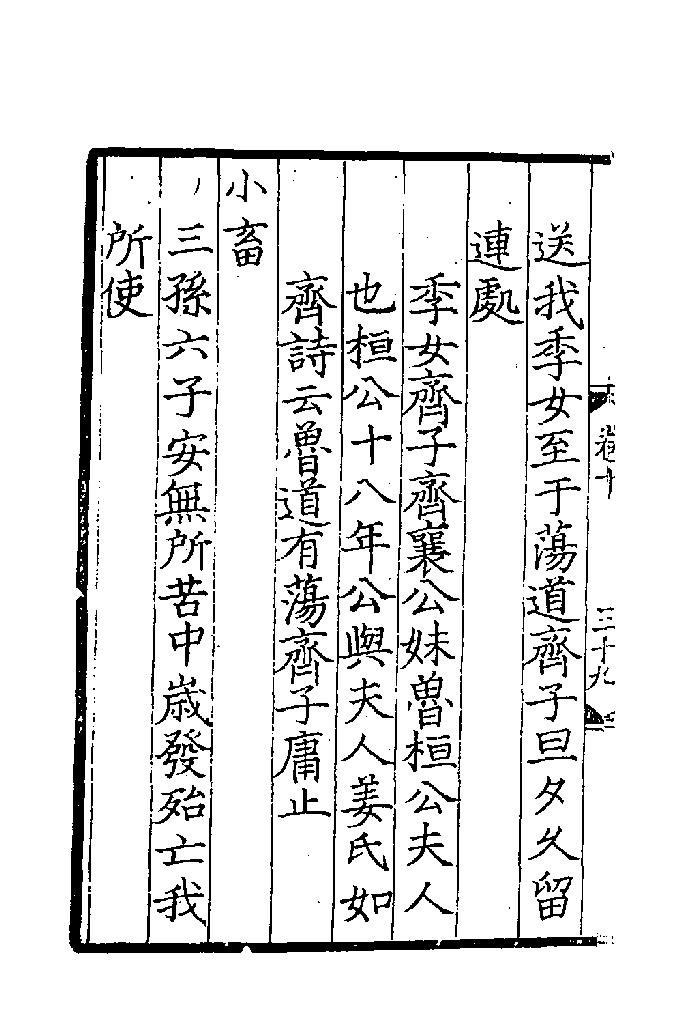 送我季女至于蕩道齊子旦夕久留
連處
季女齊子齊襄公妹魯桓公夫人
也桓公十八年公與夫人姜氏如
齊詩云魯道有蕩齊子庸止
小畜
三孫六子安無所苦中歲發殆亡我
所使
卷十
三十九